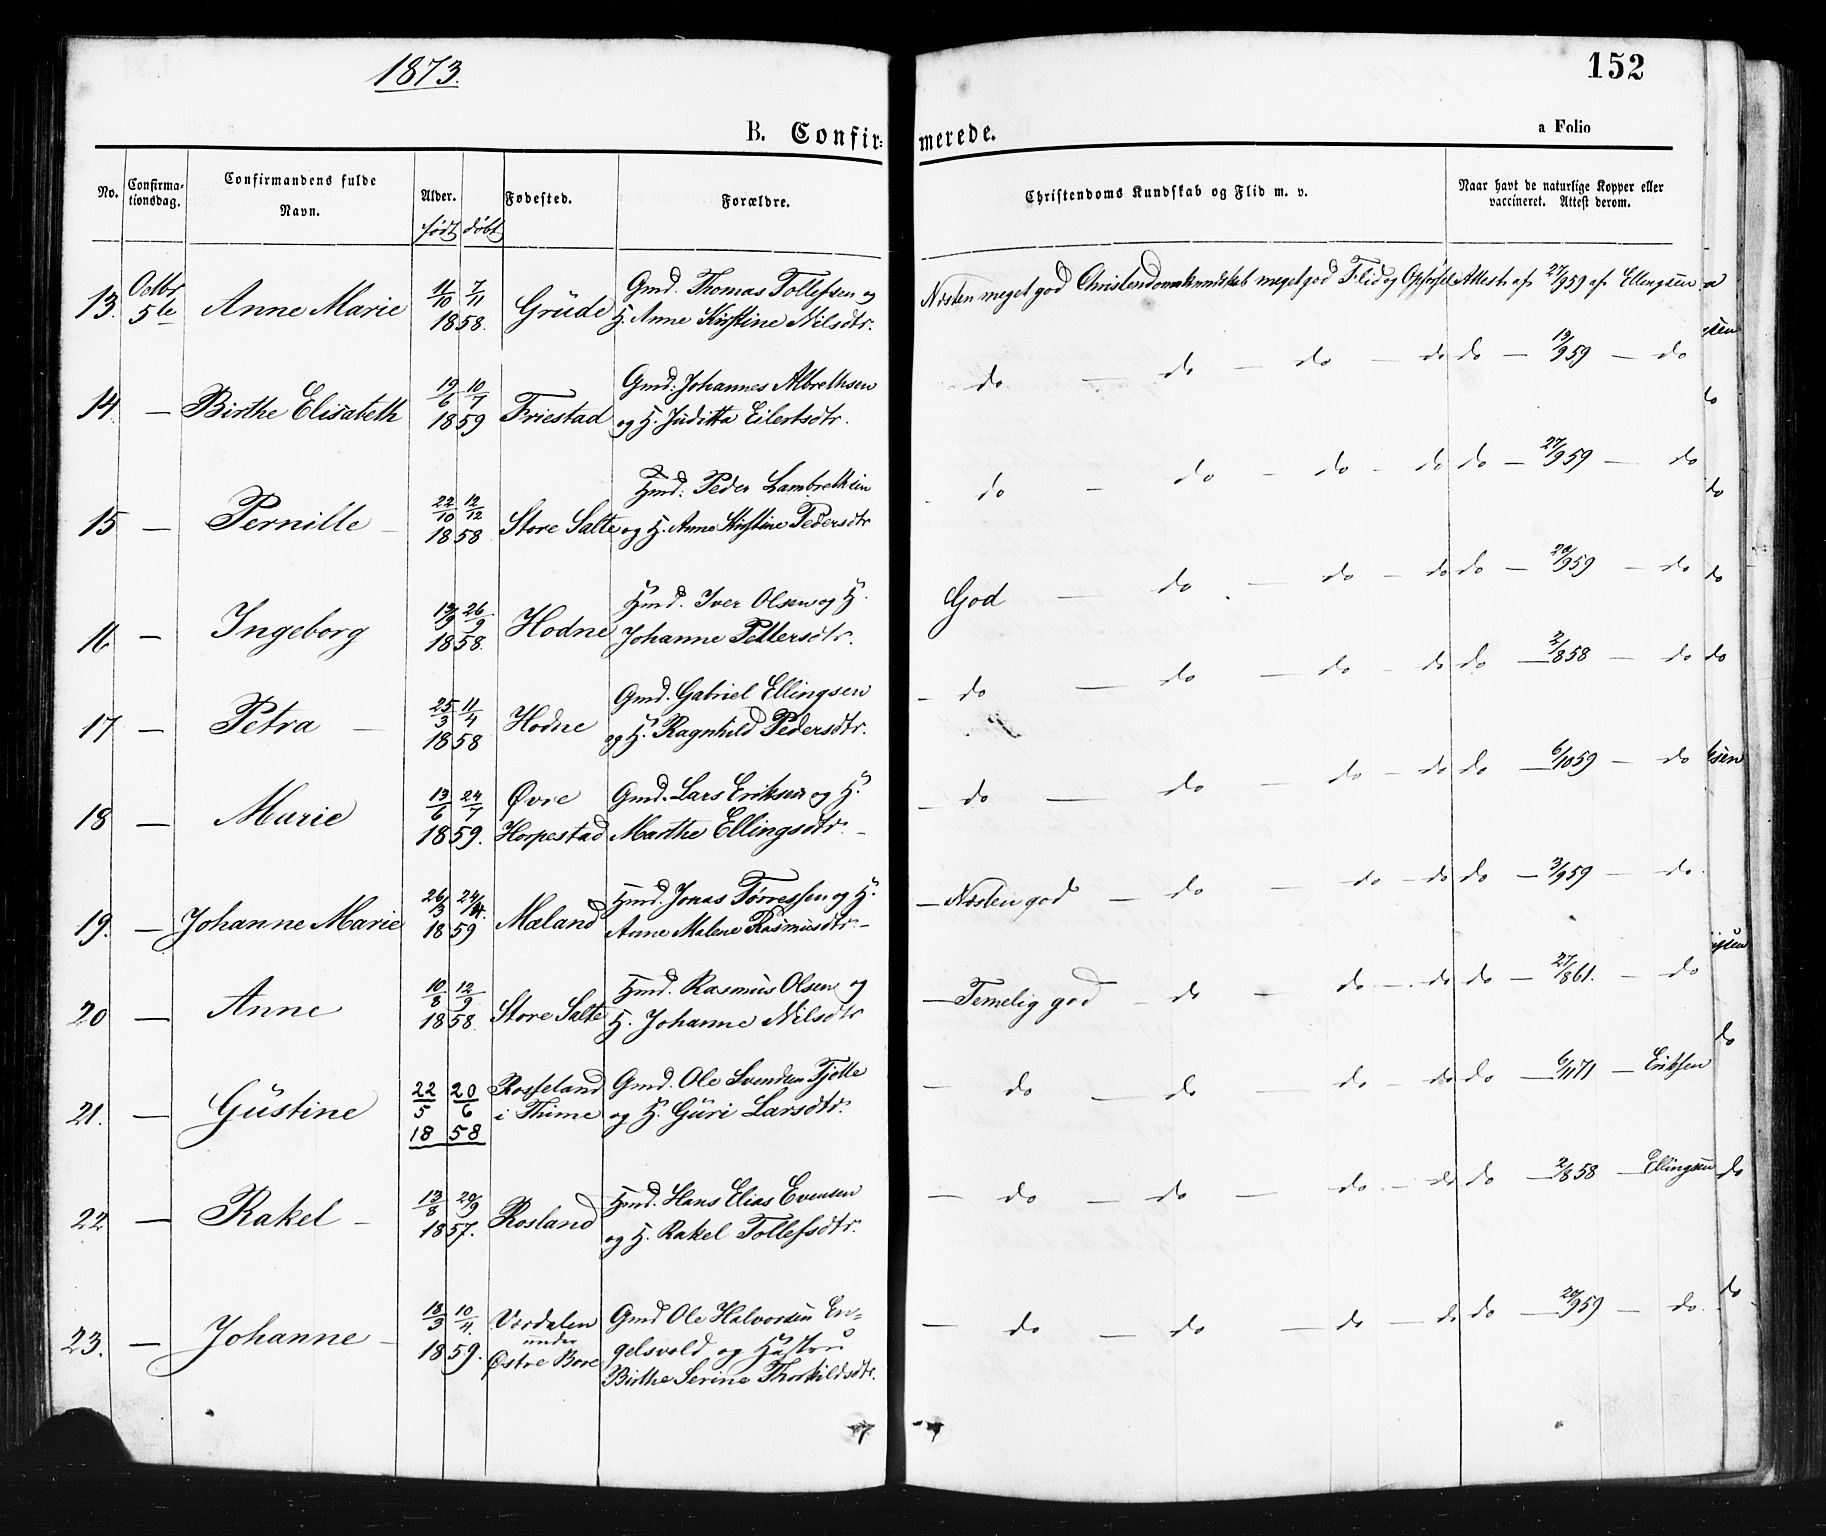 1873.
152
B. Confir-
merede.
a Folio
No.
Confirma-
tionsdag.
Confirmandens fulde
Navn.
Alder.
født
døbt
Fødested.
Forældre.
Christendoms Kundskab og Flid m. v.
Naar havt de naturlige Kopper eller
vaccineret. Attest derom.
13. Octbr 5te Anne Marie 11/10 7/11 1858. Grude Gmd. Thomas Tollefsen og
H. Anne Kirstine Nilsdtr.
Næsten meget god Christendomskundskab meget god Flid og Opførsel Attest af 27/9 59 af Ellingsen
14. — Birthe Elisabeth 19/6 10/7 1859 Friestad Gmd: Johannes Albrethsen
og H. Juditta Eilertsdtr.
do — do — do — do do — 19/9 59 — do
15 — Pernille — 22/10 12/12 1858 Store Salte Hmd: Peder Lambrethsen
og H. Anne Kirstine Pedersdtr
do — do — do — do do — 27/9 59 — do
16 — Ingeborg 13/9 26/9 1858. Hodne Hmd. Iver Olsen og H.
Johanne Pettersdtr.
God — do — do — do do — 20/9 59 — do
17 — Petra — 25/3 11/4 1858 Hodne Gmd. Gabriel Ellingsen
og H. Ragnhild Pedersdtr.
— do — do — do — do do — 2/8 58 — do
18 — Marie 13/6 24/7 1859. Øvre
Horpestad Gmd. Lars Eriksen og H.
Marthe Ellingsdtr. —
— do — do — do — do do — 6/10 59 — do
19. — Johanne Marie 26/3 24/4. 1859 Mæland Hmd. Jonas Tørressen og H.
Anne Malene Rasmusdtr. —
— Næsten god — do — do — do do — 3/9 59 — do.
20 — Anne 10/8 12/9 1858. Store Salte Hmd. Rasmus Olsen og
H. Johanne Nilsdtr
— Temelig god — do — do — do do — 27/8 61. — do
21. — Gustine 22/5 20/6 1858 Rosseland
i Thime Gmd. Ole Svendsen Tjotte
og H. Guri Larsdtr.
— do — do — do — do do — 6/11 71 — Eriksen
22 — Rakel — 13/8 20/9 1857. Rosland Hmd. Hans Elias Evensen
og H. Rakel Tollefsdtr.
— do — do — do — do do — 2/8 58 — Ellingsen
23. — Johanne — 18/3 10/4. 1859. Verdalen
under
Østre Bore Gmd Ole Halvorsen En-
gelsvold og Hustru
Birthe Serine Thorkildsdtr.
— do — do — do — do do — 27/9 59 — do.